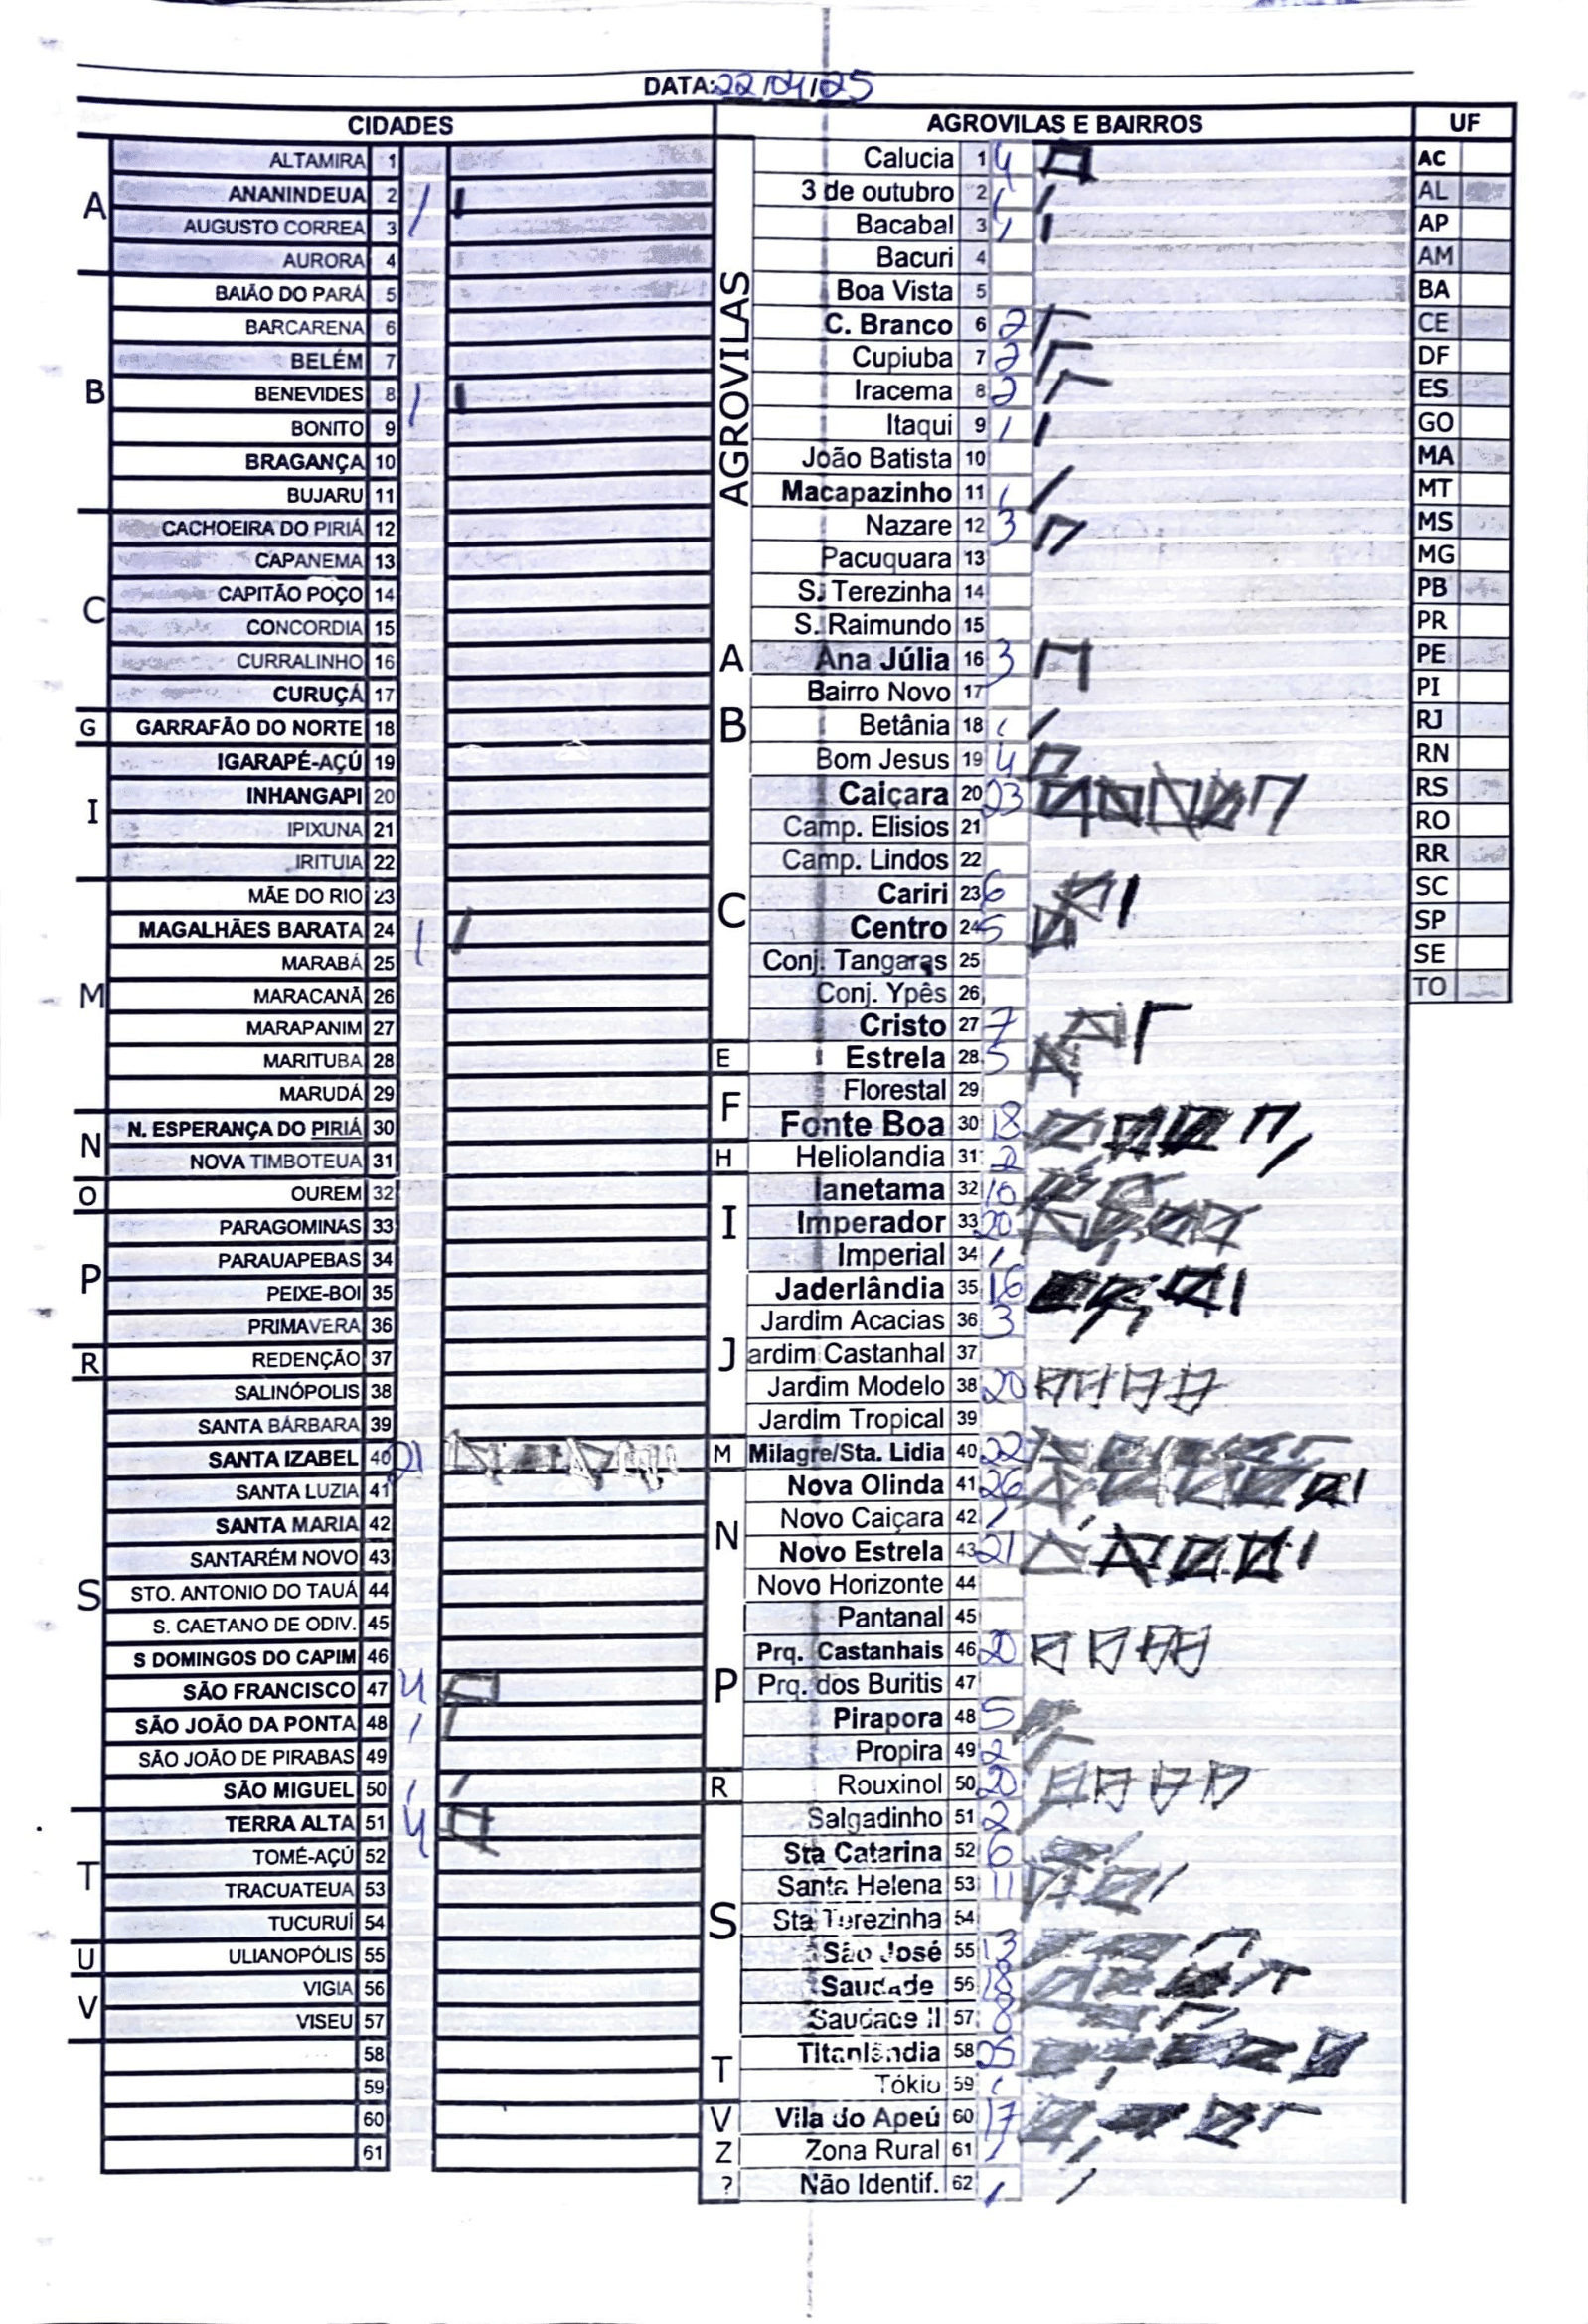 DATA: 22/04/25
CIDADES
A
ALTAMIRA 1
ANANINDEUA 2 1
AUGUSTO CORREA 3
AURORA 4
B
BAIÃO DO PARÁ 5
BARCARENA 6
BELÉM 7
BENEVIDES 8 1
BONITO 9
BRAGANÇA 10
BUJARU 11
C
CACHOEIRA DO PIRIÁ 12
CAPANEMA 13
CAPITÃO POÇO 14
CONCORDIA 15
CURRALINHO 16
CURUÇÁ 17
G
GARRAFÃO DO NORTE 18
I
IGARAPÉ-AÇÚ 19
INHANGAPI 20
IPIXUNA 21
IRITUIA 22
M
MÃE DO RIO 23
MAGALHÃES BARATA 24 1
MARABÁ 25
MARACANÃ 26
MARAPANIM 27
MARITUBA 28
MARUDÁ 29
N
N. ESPERANÇA DO PIRIÁ 30
NOVA TIMBOTEUA 31
O
OUREM 32
P
PARAGOMINAS 33
PARAUAPEBAS 34
PEIXE-BOI 35
PRIMAVERA 36
R
REDENÇÃO 37
S
SALINÓPOLIS 38
SANTA BÁRBARA 39
SANTA IZABEL 40 21
SANTA LUZIA 41
SANTA MARIA 42
SANTARÉM NOVO 43
STO. ANTONIO DO TAUÁ 44
S. CAETANO DE ODIV. 45
S DOMINGOS DO CAPIM 46
SÃO FRANCISCO 47 4
SÃO JOÃO DA PONTA 48 1
SÃO JOÃO DE PIRABAS 49
SÃO MIGUEL 50 1
T
TERRA ALTA 51 4
TOMÉ-AÇÚ 52
TRACUATEUA 53
TUCURUÍ 54
U
ULIANOPÓLIS 55
V
VIGIA 56
VISEU 57
58
59
60
61
AGROVILAS E BAIRROS
AGROVILAS
Calucia 1 4
3 de outubro 2 1
Bacabal 3 1
Bacuri 4
Boa Vista 5
C. Branco 6 2
Cupiuba 7 2
Iracema 8 2
Itaqui 9 1
João Batista 10
Macapazinho 11 1
Nazare 12 3
Pacuquara 13
S. Terezinha 14
S. Raimundo 15
A
Ana Júlia 16 3
B
Bairro Novo 17
Betânia 18 1
Bom Jesus 19 4
C
Caiçara 20 23
Camp. Elisios 21
Camp. Lindos 22
Cariri 23 6
Centro 24 5
Conj. Tangaras 25
Conj. Ypês 26
Cristo 27 7
E
Estrela 28 5
F
Florestal 29
Fonte Boa 30 18
H
Heliolandia 31 2
I
Ianetama 32 10
Imperador 33 20
Imperial 34 1
J
Jaderlândia 35 16
Jardim Acacias 36 3
ardim Castanhal 37
Jardim Modelo 38 20
Jardim Tropical 39
M
Milagre/Sta. Lidia 40 22
N
Nova Olinda 41 26
Novo Caiçara 42 1
Novo Estrela 43 21
Novo Horizonte 44
P
Pantanal 45
Prq. Castanhais 46 20
Prq. dos Buritis 47
Pirapora 48 5
Propira 49 2
R
Rouxinol 50 20
S
Salgadinho 51 2
Sta Catarina 52 6
Santa Helena 53 11
Sta Terezinha 54
São José 55 13
Saudade 56 18
Saudade II 57 8
T
Titanlândia 58 25
Tókio 59 1
V
Vila do Apeú 60 17
Z
Zona Rural 61 1
?
Não Identif. 62 1
UF
AC
AL
AP
AM
BA
CE
DF
ES
GO
MA
MT
MS
MG
PB
PR
PE
PI
RJ
RN
RS
RO
RR
SC
SP
SE
TO